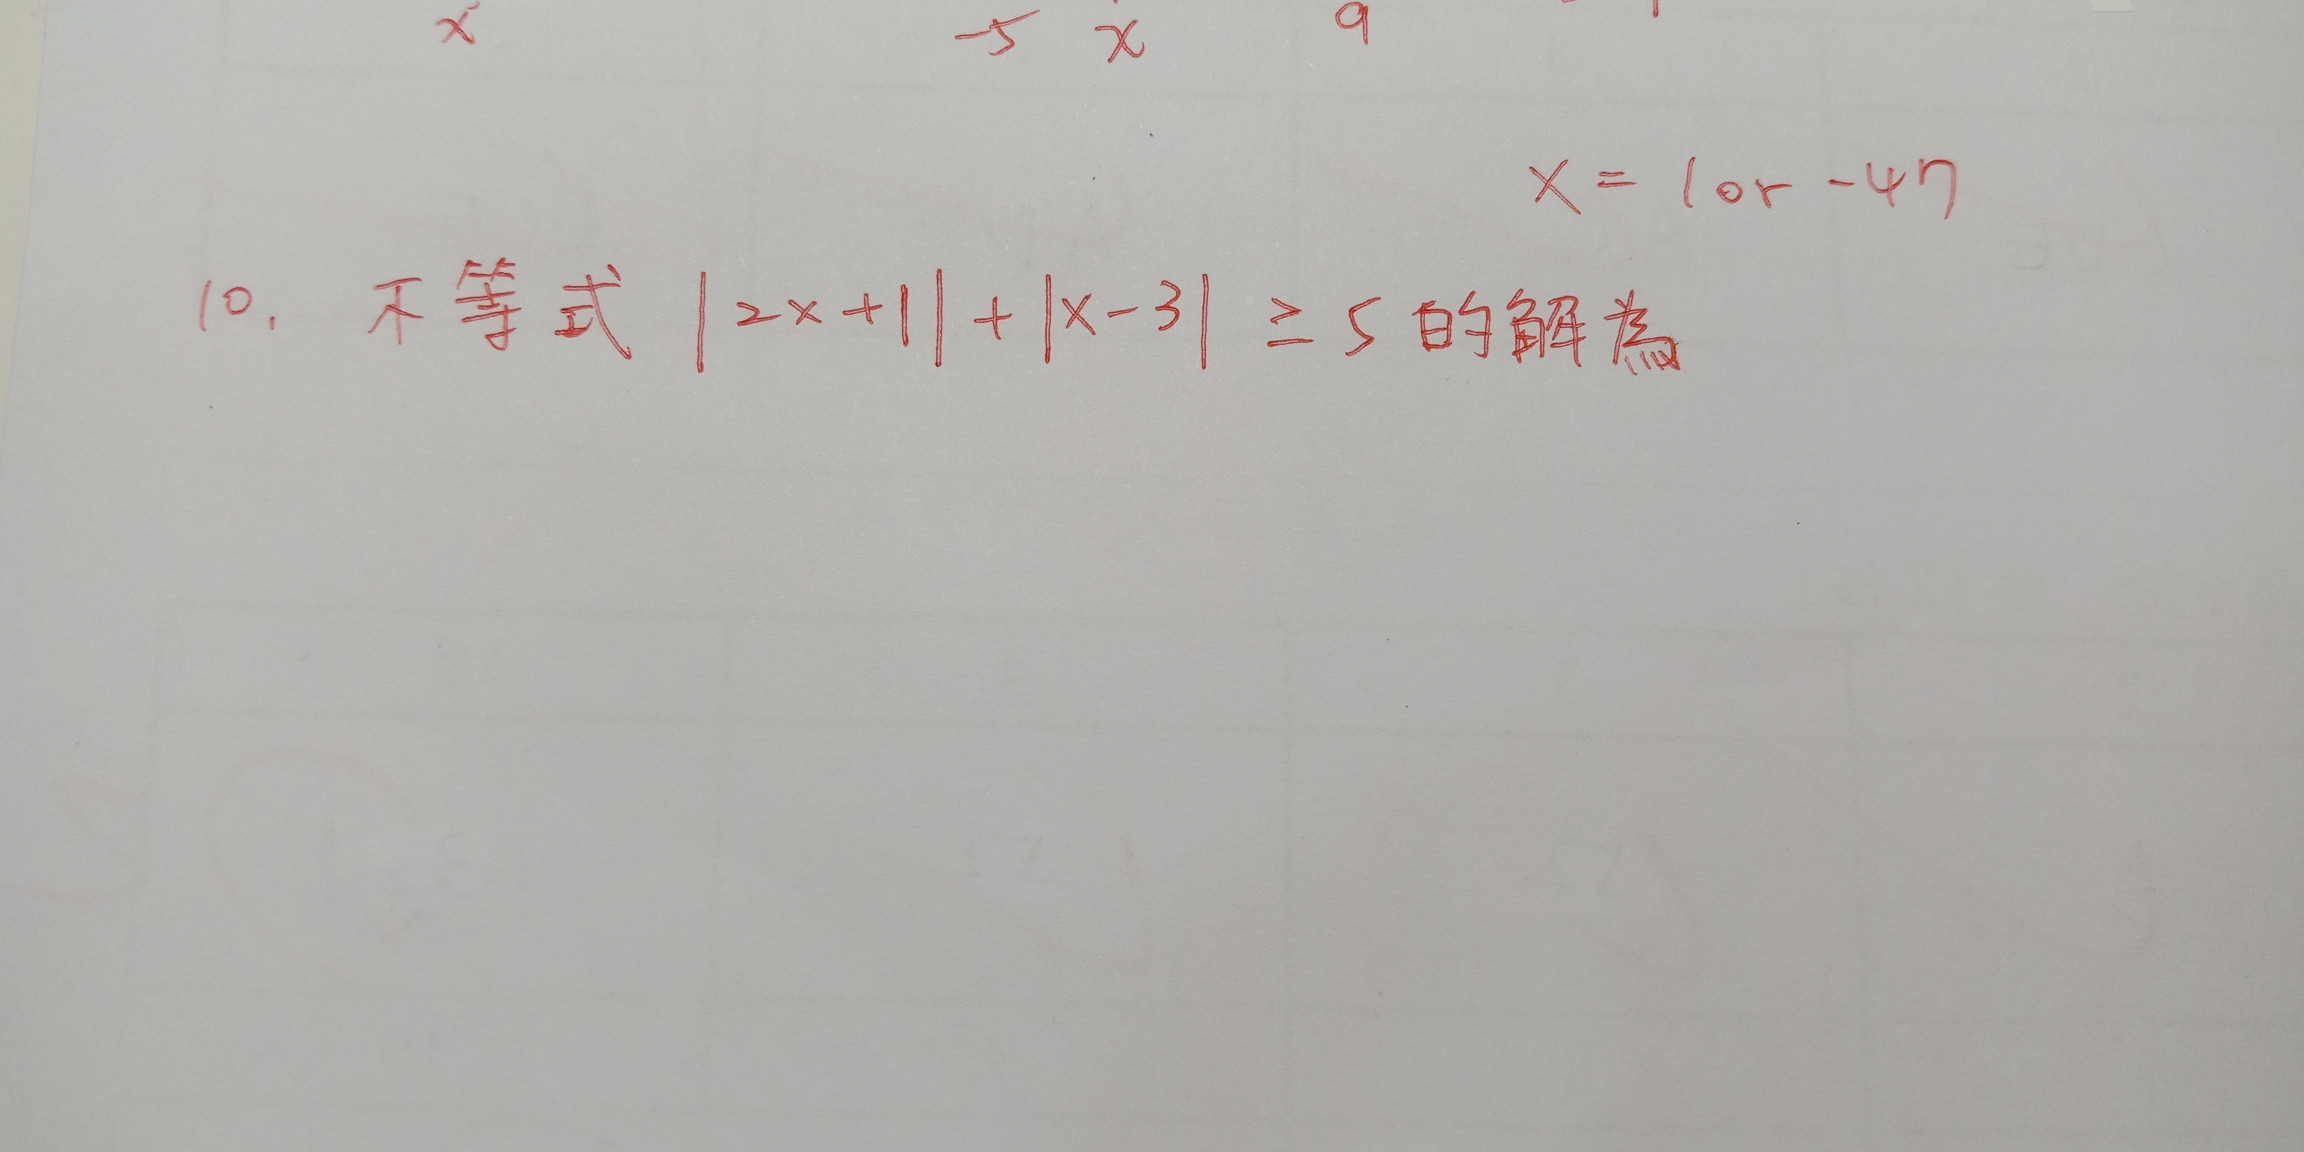 x -5 x 9
x = 1 or -47
10. 不等式 |2x+1| + |x-3| ≥ 5 的解為